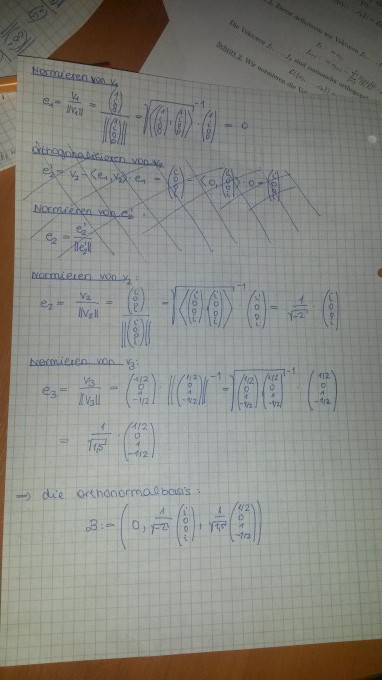 Normieren von v₁
e₁ = v₁/||v₁|| = (1 i 0 0)/||(1 i 0 0)|| = √⟨(1 i 0 0), (1 i 0 0)⟩⁻¹ · (1 i 0 0) = 0
Orthogonalisieren von v₂
e₂' = v₂ - ⟨e₁, v₂⟩ · e₁ = (i 0 0 i) - ⟨0, (i 0 0 i)⟩ · 0 = (i 0 0 i)
Normieren von e₂' :
e₂ = e₂'/||e₂'||
Normieren von v₂ :
e₂ = v₂/||v₂|| = (i 0 0 i)/||(i 0 0 i)|| = √⟨(i 0 0 i), (i 0 0 i)⟩⁻¹ (i 0 0 i) = 1/√-2 · (i 0 0 i)
Normieren von v₃:
e₃ = v₃/||v₃|| = (1/2 0 1 -1/2) · ||(1/2 0 1 -1/2)||⁻¹ = √(1/2 0 1 -1/2), (1/2 0 1 -1/2)⁻¹ · (1/2 0 1 -1/2)
= 1/√1,5 · (1/2 0 1 -1/2)
⇒ die Orthonormalbasis:
B := (0, 1/√-2 (i 0 0 i), 1/√1,5 (1/2 0 1 -1/2))